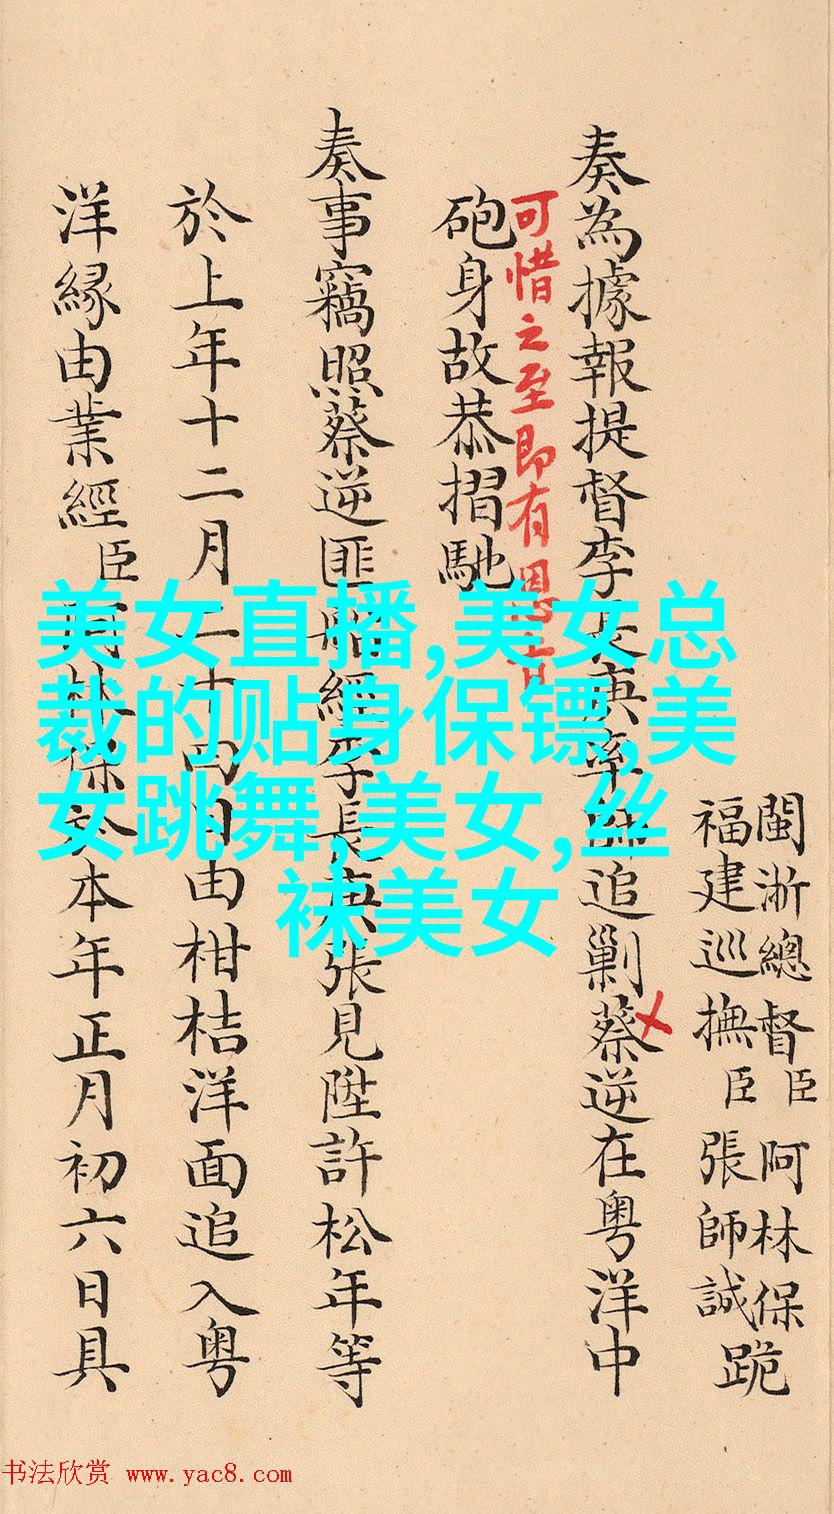 閩浙總督臣阿林保
福建巡撫臣張師誠跪
奏為據報提督李長庚率師追剿蔡逆在粵洋中
可惜之至即有恩旨
砲身故恭摺馳
奏事竊照蔡逆匪船經李長庚張見陞許松年等
於上年十二月二十四日由柑桔洋面追入粵
洋緣由業經臣阿林保於本年正月初六日具
美女直播,美女总
裁的贴身保镖,美
女跳舞,美女,丝
袜美女
书法欣赏 www.yac8.com